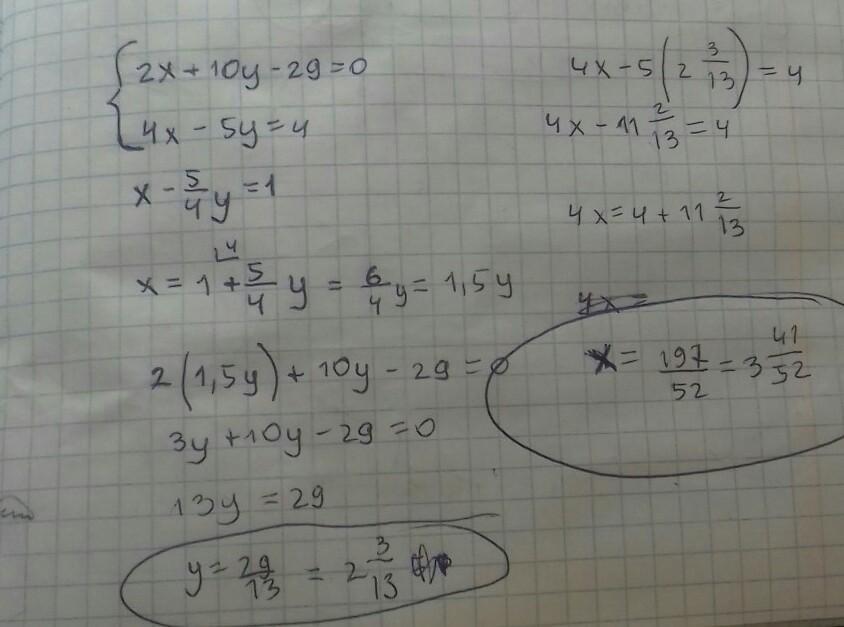 2x + 10y - 29 = 0
4x - 5y = 4
x - 5/4 y = 1
x = 1 + 5/4 y = 6/4 y = 1,5y
2(1,5y) + 10y - 29 = 0
3y + 10y - 29 = 0
13y = 29
y = 29/13 = 2 3/13
4x - 5(2 3/13) = 4
4x - 11 2/13 = 4
4x = 4 + 11 2/13
x = 197/52 = 3 41/52